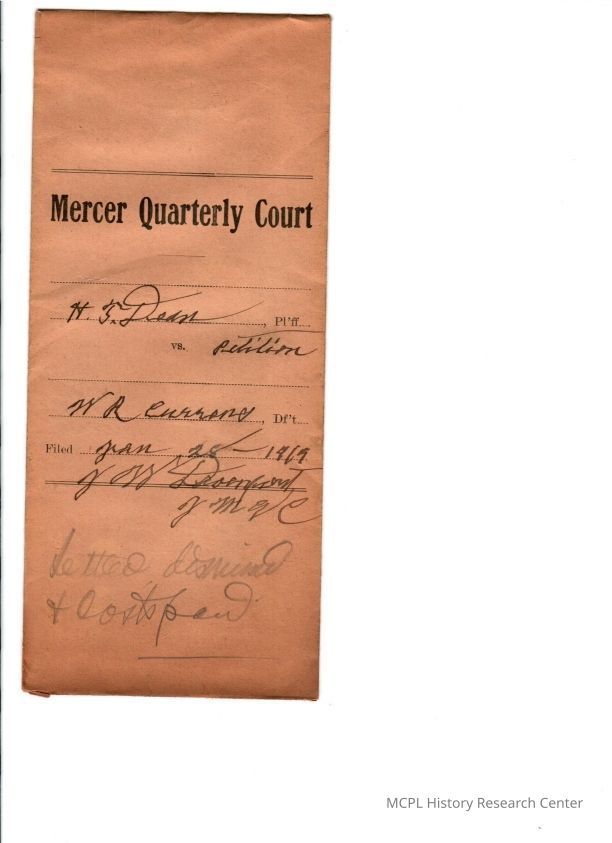 Mercer Quarterly Court
H. T. Dean, Pl'ff.
vs. Petition
W R Currens, Df't.
Filed Jan 28 - 1919
J W Davenport
J M Q C
Settled dismissed
& Costs paid
MCPL History Research Center